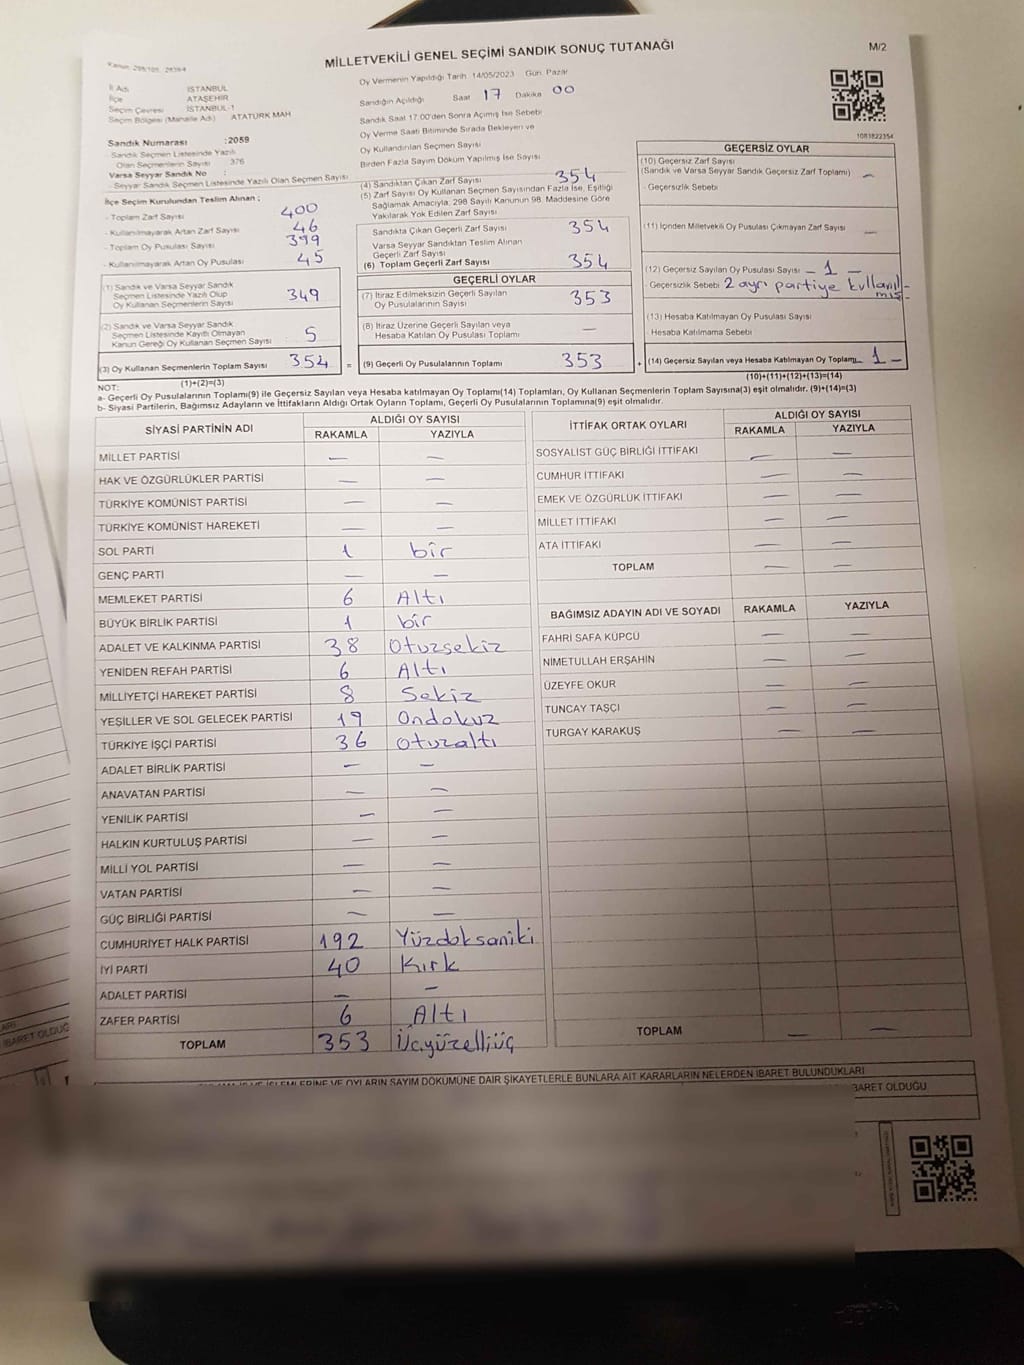 MİLLETVEKİLİ GENEL SEÇİMİ SANDIK SONUÇ TUTANAĞI
M/2
İl Adı İSTANBUL
İlçe ATAŞEHİR
Seçim Çevresi İSTANBUL-1
Seçim Bölgesi (Mahalle Adı) ATATÜRK MAH
Sandık Numarası :2059
- Sandık Seçmen Listesinde Yazılı
Olan Seçmenlerin Sayısı 376
Varsa Seyyar Sandık No :
- Seyyar Sandık Seçmen Listesinde Yazılı Olan Seçmen Sayısı
İlçe Seçim Kurulundan Teslim Alınan :
- Toplam Zarf Sayısı 400
- Kullanılmayarak Artan Zarf Sayısı 46
- Toplam Oy Pusulası Sayısı 399
- Kullanılmayarak Artan Oy Pusulası 45
(1) Sandık ve Varsa Seyyar Sandık
Seçmen Listesinde Yazılı Olup
Oy Kullanan Seçmenlerin Sayısı 349
(2) Sandık ve Varsa Seyyar Sandık
Seçmen Listesinde Kayıtlı Olmayan
Kanun Gereği Oy Kullanan Seçmen Sayısı 5
(3) Oy Kullanan Seçmenlerin Toplam Sayısı 354 =
(1)+(2)=(3)
Oy Vermenin Yapıldığı Tarih 14/05/2023 Gün: Pazar
Sandığın Açıldığı Saat 17 Dakika 00
Sandık Saat 17.00'den Sonra Açımış İse Sebebi
Oy Verme Saati Bitiminde Sırada Bekleyen ve
Oy Kullandırılan Seçmen Sayısı
Birden Fazla Sayım Döküm Yapılmış İse Sayısı
(4) Sandıktan Çıkan Zarf Sayısı 354
(5) Zarf Sayısı Oy Kullanan Seçmen Sayısından Fazla İse, Eşitliği
Sağlamak Amacıyla, 298 Sayılı Kanunun 98. Maddesine Göre
Yakılarak Yok Edilen Zarf Sayısı
Sandıkta Çıkan Geçerli Zarf Sayısı 354
Varsa Seyyar Sandıktan Teslim Alınan
Geçerli Zarf Sayısı
(6) Toplam Geçerli Zarf Sayısı 354
GEÇERLİ OYLAR
(7) İtiraz Edilmeksizin Geçerli Sayılan
Oy Pusulalarının Sayısı 353
(8) İtiraz Üzerine Geçerli Sayılan veya
Hesaba Katılan Oy Pusulası Toplamı —
(9) Geçerli Oy Pusulalarının Toplamı 353 +
1083822354
GEÇERSİZ OYLAR
(10) Geçersiz Zarf Sayısı
(Sandık ve Varsa Seyyar Sandık Geçersiz Zarf Toplamı) —
- Geçersizlik Sebebi
(11) İçinden Milletvekili Oy Pusulası Çıkmayan Zarf Sayısı —
(12) Geçersiz Sayılan Oy Pusulası Sayısı — 1 —
Geçersizlik Sebebi 2 ayrı partiye kullanıl-
mış.
(13) Hesaba Katılmayan Oy Pusulası Sayısı
Hesaba Katılmama Sebebi
(14) Geçersiz Sayılan veya Hesaba Katılmayan Oy Toplamı 1 —
(10)+(11)+(12)+(13)=(14)
NOT:
a- Geçerli Oy Pusulalarının Toplamı(9) ile Geçersiz Sayılan veya Hesaba katılmayan Oy Toplamı(14) Toplamları, Oy Kullanan Seçmenlerin Toplam Sayısına(3) eşit olmalıdır. (9)+(14)=(3)
b- Siyasi Partilerin, Bağımsız Adayların ve İttifakların Aldığı Ortak Oyların Toplamı, Geçerli Oy Pusulalarının Toplamına(9) eşit olmalıdır.
SİYASİ PARTİNİN ADI ALDIĞI OY SAYISI
RAKAMLA YAZIYLA
MİLLET PARTİSİ — —
HAK VE ÖZGÜRLÜKLER PARTİSİ — —
TÜRKİYE KOMÜNİST PARTİSİ — —
TÜRKİYE KOMÜNİST HAREKETİ — —
SOL PARTİ 1 bir
GENÇ PARTİ — —
MEMLEKET PARTİSİ 6 Altı
BÜYÜK BİRLİK PARTİSİ 1 bir
ADALET VE KALKINMA PARTİSİ 38 Otuzsekiz
YENİDEN REFAH PARTİSİ 6 Altı
MİLLİYETÇİ HAREKET PARTİSİ 8 Sekiz
YEŞİLLER VE SOL GELECEK PARTİSİ 19 Ondokuz
TÜRKİYE İŞÇİ PARTİSİ 36 otuzaltı
ADALET BİRLİK PARTİSİ — —
ANAVATAN PARTİSİ — —
YENİLİK PARTİSİ — —
HALKIN KURTULUŞ PARTİSİ — —
MİLLİ YOL PARTİSİ — —
VATAN PARTİSİ — —
GÜÇ BİRLİĞİ PARTİSİ — —
CUMHURİYET HALK PARTİSİ 192 Yüzdoksaniki
İYİ PARTİ 40 Kırk
ADALET PARTİSİ — —
ZAFER PARTİSİ 6 Altı
TOPLAM 353 Üçyüzelliüç
İTTİFAK ORTAK OYLARI ALDIĞI OY SAYISI
RAKAMLA YAZIYLA
SOSYALİST GÜÇ BİRLİĞİ İTTİFAKI — —
CUMHUR İTTİFAKI — —
EMEK VE ÖZGÜRLÜK İTTİFAKI — —
MİLLET İTTİFAKI — —
ATA İTTİFAKI — —
TOPLAM — —
BAĞIMSIZ ADAYIN ADI VE SOYADI RAKAMLA YAZIYLA
FAHRİ SAFA KÜPCÜ — —
NİMETULLAH ERŞAHİN — —
ÜZEYFE OKUR — —
TUNCAY TAŞÇI — —
TURGAY KARAKUŞ — —
TOPLAM — —
OYLARIN SAYIM DÖKÜMÜNE DAİR ŞİKAYETLERLE BUNLARA AİT KARARLARIN NELERDEN İBARET BULUNDUKLARI
İBARET OLDUĞU